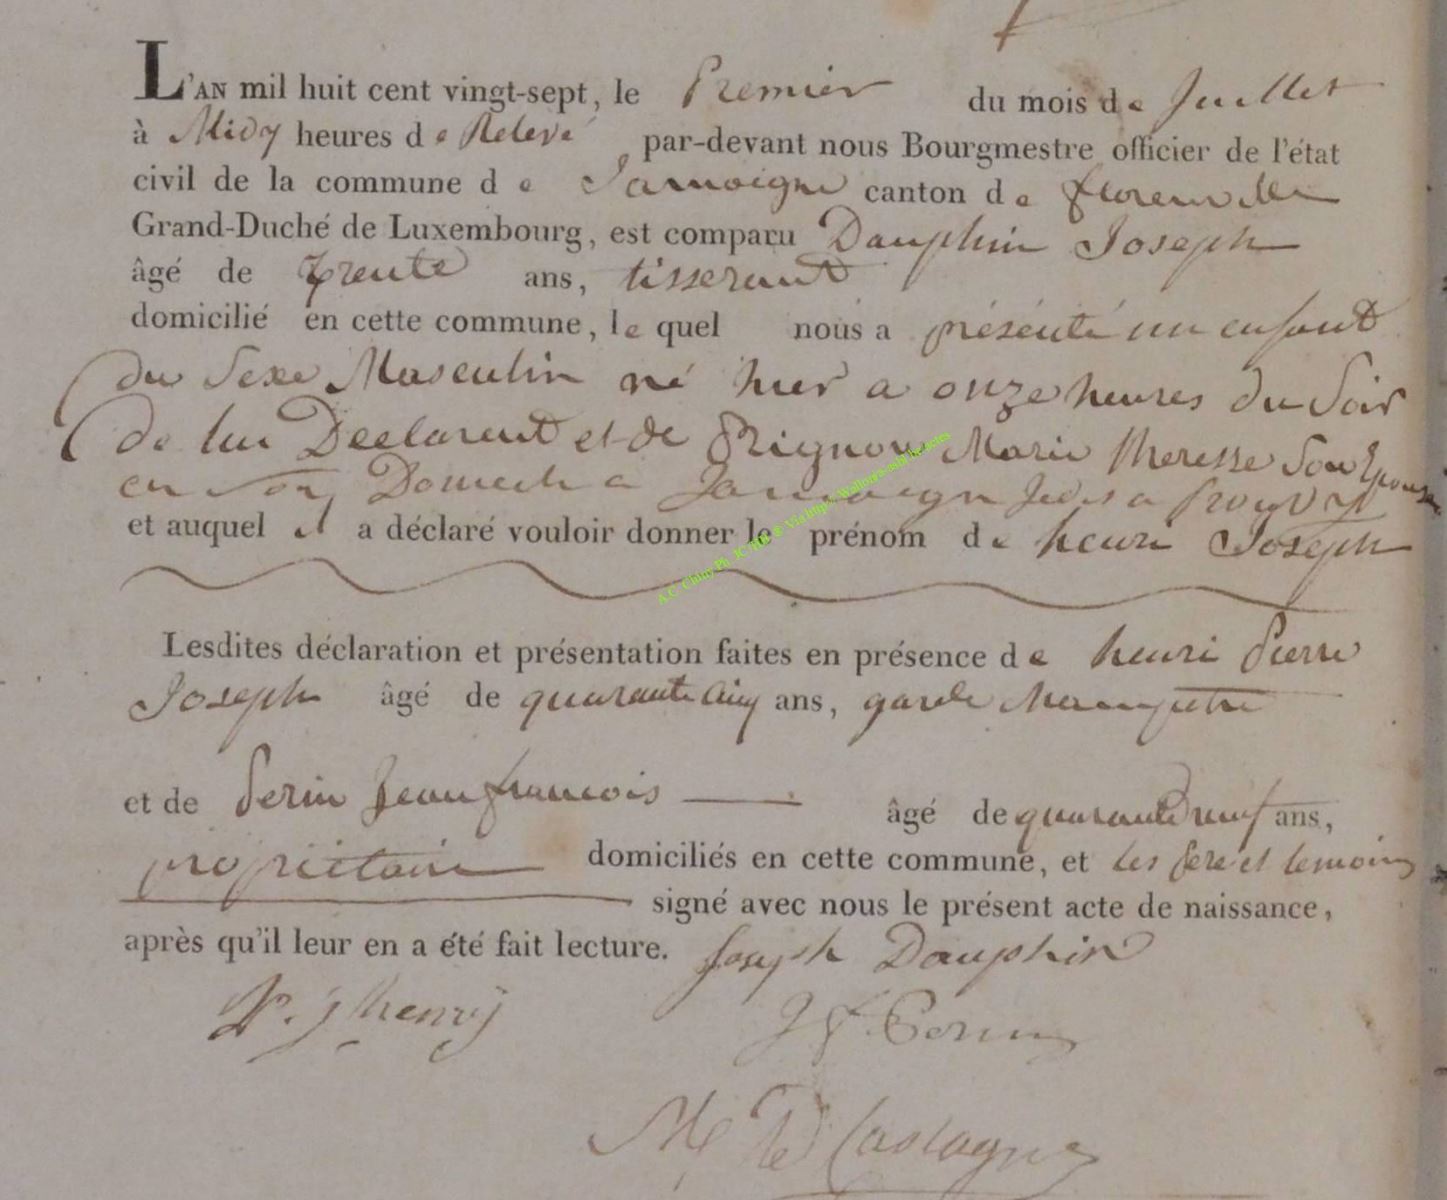 L'AN mil huit cent vingt-sept, le Premier du mois de Juillet
à Midy heures de Relevé par-devant nous Bourgmestre officier de l'état
civil de la commune de Jamoigne canton de florenville
Grand-Duché de Luxembourg, est comparu Dauphin Joseph
âgé de trente ans, tisserant
domicilié en cette commune, le quel nous a présenté un enfant
du Sexe Masculin né hier a onze heures du Soir
de lui Declarent et de Prignon Marie theresse Son Epouse
en son Domicile a Jamoigne
et auquel il a déclaré vouloir donner le prénom de henri Joseph
Lesdites déclaration et présentation faites en présence de henri Pierre
Joseph âgé de quarante Cinq ans, garde
et de Perin Jean francois âgé de quarante neuf ans,
propriétaire domiciliés en cette commune, et les pere et temoins
signé avec nous le présent acte de naissance,
après qu'il leur en a été fait lecture. Joseph Dauphin
P. j henry J f Perin
A.C. Chiny Ph. JC HR ® Via http:// Wallonia-asbl be/actes